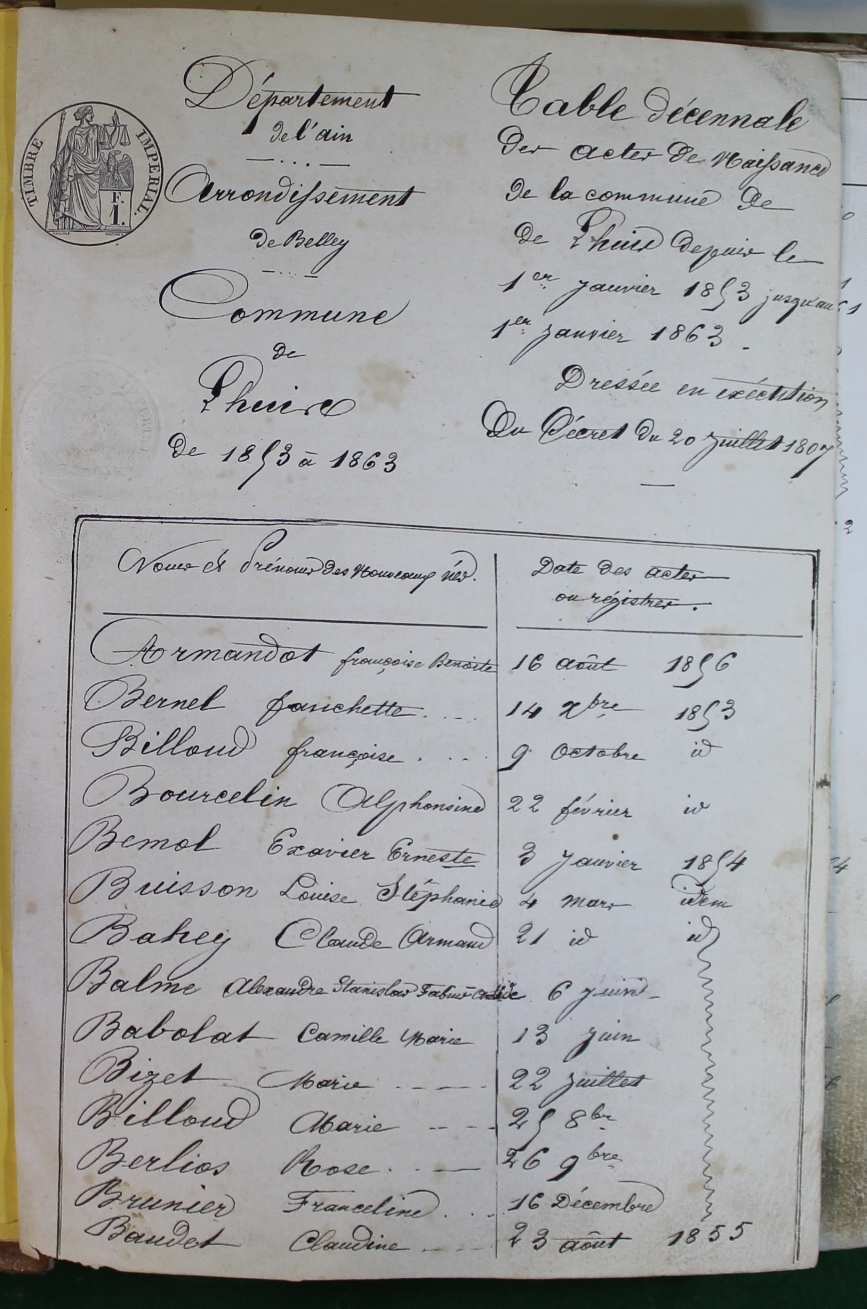 TIMBRE IMPERIAL.
F.
1.
Département
de l'ain
Arrondissement
de Belley
Commune
de
Lhuis
de 1853 à 1863
Table décennale
des actes de Naissance
de la commune de
de Lhuis depuis le
1er janvier 1853 jusqu'au
1er janvier 1863.
Dressée en exécution
Du Décret du 20 juillet 1807
Noms et Prénoms des Nouveaux nés.
Date des actes
ou régistres.
Armandot françoise Benoite 16 août 1856
Bernel fanchette.... 14 Xbre 1853
Billoud françoise.... 9 octobre id
Bourcelin Alphonsine 22 février id
Bemol Exavier Erneste 3 janvier 1854
Buisson Louise Stéphanie 4 mars idem
Bahey Claude Armand 21 id id
Balme Alexandre Stanislas 6 juin
Babolat Camille Marie 13 juin
Bizet Marie 22 juillet
Billoud Marie 25 8bre
Berlios Rose. 26 9bre
Brunier Franceline... 16 Décembre
Baudet Claudine 23 août 1855